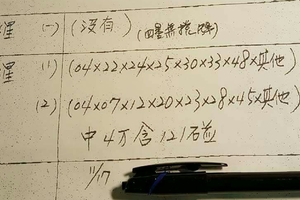 理 (一) (没有)
理 (1) (04×22×24×25×30×33×48×其他)
(2) (04×07×12×20×23×28×45×其他)
中4万含121砼
11/17